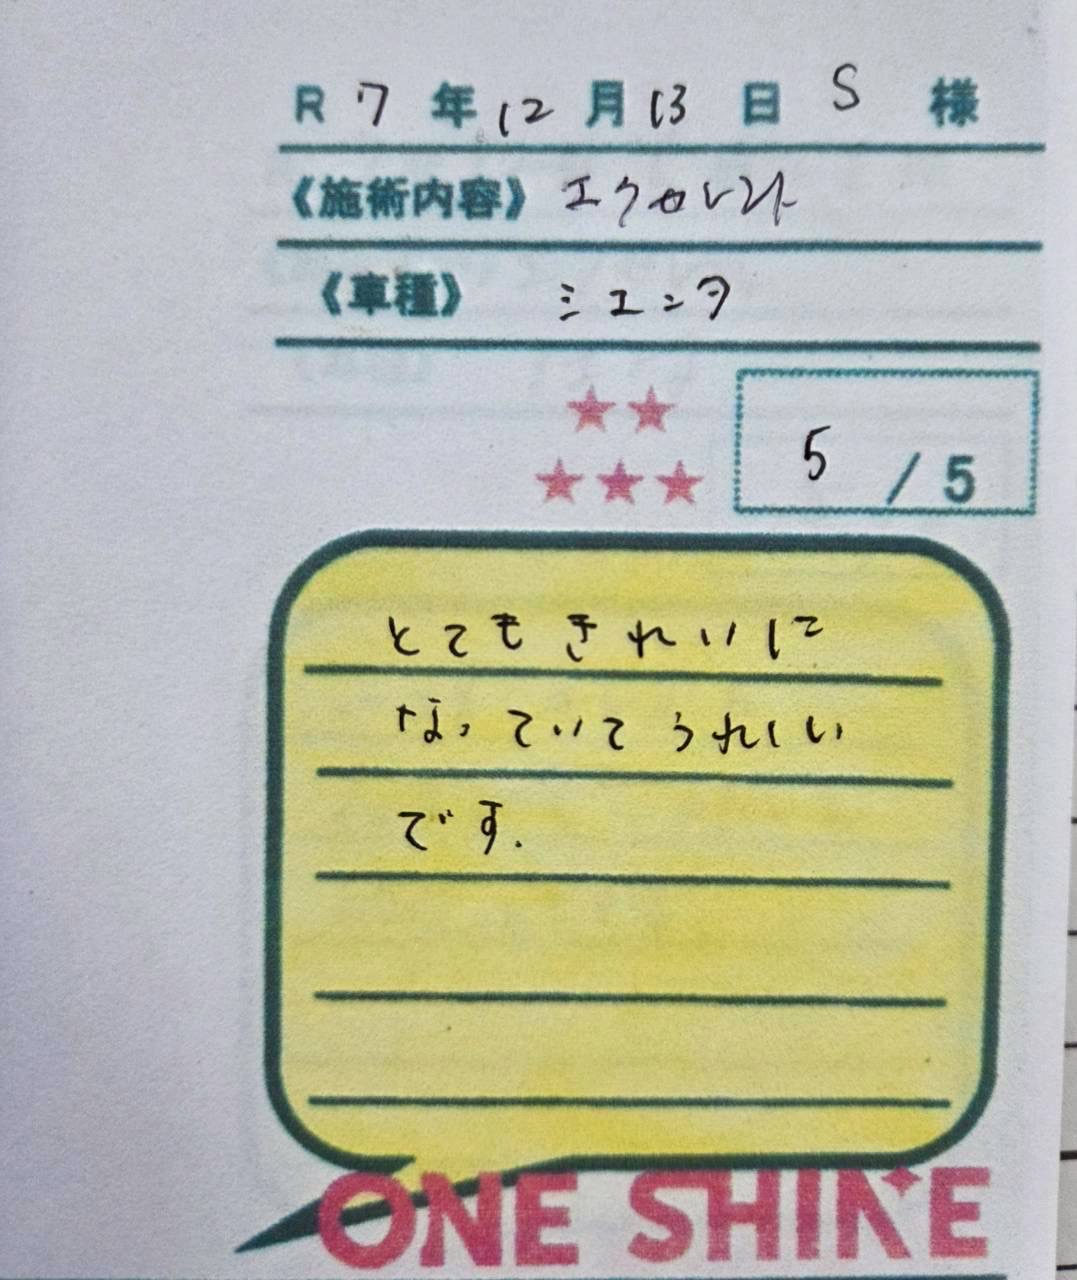 R 7 年 12 月 13 日 S 様
《施術内容》 エクセレント
《車種》 シエンタ
★★
★★★
5 / 5
とてもきれいに
なっていてうれしい
です.
ONE SHINE